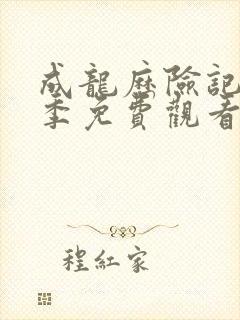 成龍歷險記
季免費觀看
程紅家